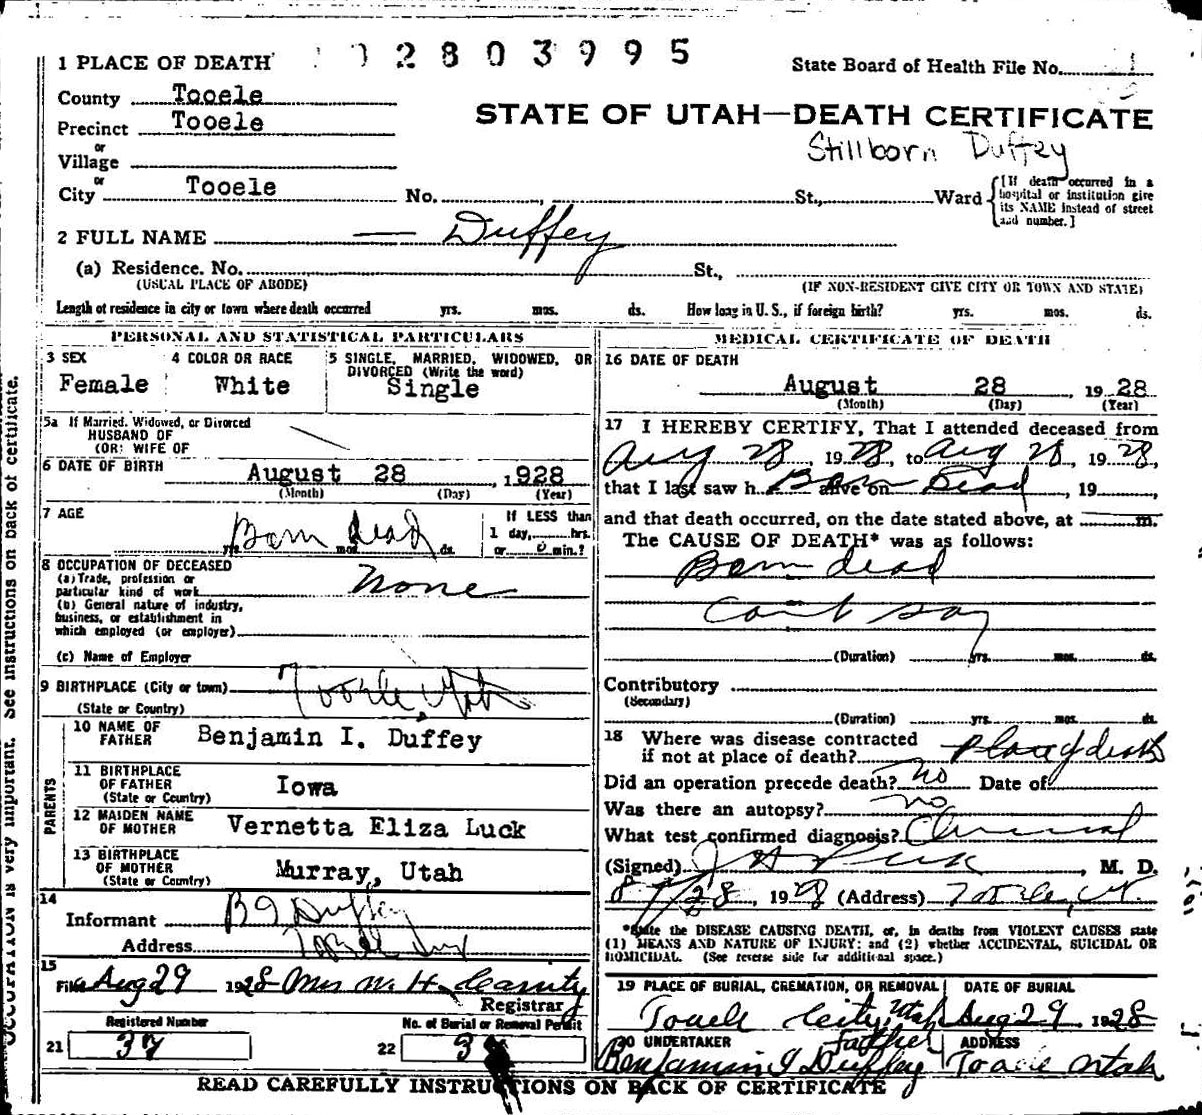 2803995
State Board of Health File No.
1 PLACE OF DEATH
County Tooele
Precinct Tooele
or
Village
or
City Tooele No. St., Ward
STATE OF UTAH—DEATH CERTIFICATE
Stillborn Duffey
[If death occurred in a
hospital or institution give
its NAME instead of street
and number.]
2 FULL NAME — Duffey
(a) Residence. No. St.,
(USUAL PLACE OF ABODE) (IF NON-RESIDENT GIVE CITY OR TOWN AND STATE)
Length of residence in city or town where death occurred yrs. mos. ds. How long in U. S., if foreign birth? yrs. mos. ds.
PERSONAL AND STATISTICAL PARTICULARS
3 SEX 4 COLOR OR RACE 5 SINGLE, MARRIED, WIDOWED, OR
DIVORCED (Write the word)
Female White Single
5a If Married, Widowed, or Divorced
HUSBAND OF
(OR) WIFE OF
6 DATE OF BIRTH August 28, 1928
(Month) (Day) (Year)
7 AGE Born dead If LESS than
1 day, hrs.
yrs. mos. ds. or 0 min.?
8 OCCUPATION OF DECEASED
(a) Trade, profession or
particular kind of work None
(b) General nature of industry,
business, or establishment in
which employed (or employer)
(c) Name of Employer
9 BIRTHPLACE (City or town) Tooele Utah
(State or Country)
PARENTS
10 NAME OF
FATHER Benjamin I. Duffey
11 BIRTHPLACE
OF FATHER Iowa
(State or Country)
12 MAIDEN NAME
OF MOTHER Vernetta Eliza Luck
13 BIRTHPLACE
OF MOTHER Murray, Utah
(State or Country)
14
Informant B I Duffey
Address Tooele
15
Filed Aug 29 1928 Mrs M. H.
Registrar
Registered Number No. of Burial or Removal Permit
21 37 22 3
MEDICAL CERTIFICATE OF DEATH
16 DATE OF DEATH
August 28, 1928
(Month) (Day) (Year)
17 I HEREBY CERTIFY, That I attended deceased from
Aug 28, 1928, to Aug 28, 1928,
that I last saw h alive on Born Dead, 19
and that death occurred, on the date stated above, at m.
The CAUSE OF DEATH* was as follows:
Born dead
Cant say
(Duration) yrs. mos. ds.
Contributory
(Secondary)
(Duration) yrs. mos. ds.
18 Where was disease contracted
if not at place of death? Place of death
Did an operation precede death? no Date of
Was there an autopsy? no
What test confirmed diagnosis?
(Signed) J H Peck, M. D.
8/28, 1928 (Address) Tooele, Ut.
*State the DISEASE CAUSING DEATH, or, in deaths from VIOLENT CAUSES state
(1) MEANS AND NATURE OF INJURY; and (2) whether ACCIDENTAL, SUICIDAL OR
HOMICIDAL. (See reverse side for additional space.)
19 PLACE OF BURIAL, CREMATION, OR REMOVAL DATE OF BURIAL
Tooele City, Utah Aug 29 1928
20 UNDERTAKER father ADDRESS
Benjamin I Duffey Tooele Utah
READ CAREFULLY INSTRUCTIONS ON BACK OF CERTIFICATE
OCCUPATION is very important. See instructions on back of certificate.